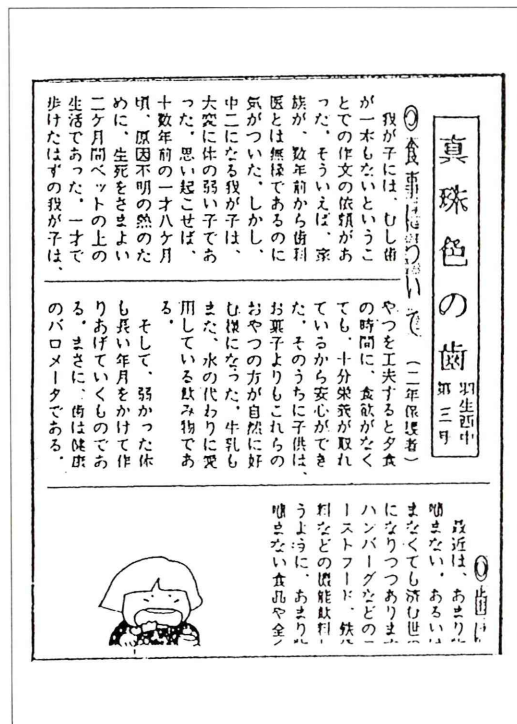 真珠色の歯
羽生西中
第三号
◎食事について
(二年保護者)
我が子には、むし歯
が一本もないというこ
とでの作文の依頼があ
った。そういえば、家
族が、数年前から歯科
医とは無縁であるのに
気がついた。しかし、
中二になる我が子は、
大変に体の弱い子であ
った。思い起こせば、
十数年前の一才八ケ月
頃、原因不明の熱のた
めに、生死をさまよい
二ケ月間ベットの上の
生活であった。一才で
歩けたはずの我が子は、
やつを工夫すると夕食
の時間に、食欲がなく
ても、十分栄養が取れ
ているから安心ができ
た。そのうちに子供は、
お菓子よりもこれらの
おやつの方が自然に好
む様になった。牛乳も
また、水の代わりに愛
用している飲み物であ
る。
そして、弱かった体
も長い年月をかけて作
りあげていくものであ
る。まさに、歯は健康
のバロメータである。
◎歯
最近は、あまり
噛まない、あるい
まなくても済む世
になりつつあります
ハンバーグなどの
ーストフード、鉄
料などの機能飲料
うように、あまり
噛まない食品や全